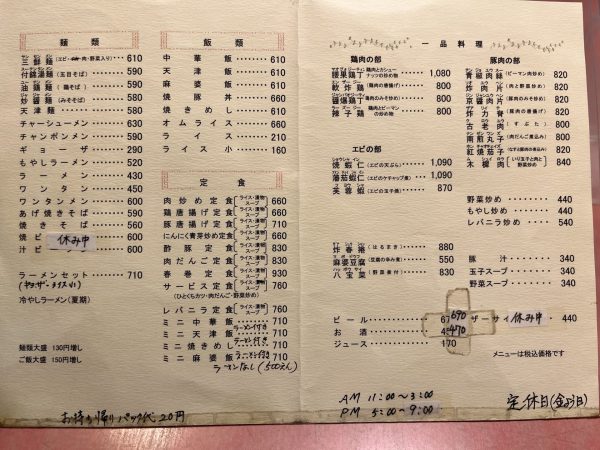 麺類
三鮮麺 (エビ・肉・野菜入り) 610
什錦湯麺 (五目そば) 590
油鶏麺 (鶏そば) 590
炒醤麺 (みそそば) 580
天津麺 580
チャーシューメン 530
チャンポンメン 590
ギョーザ 290
もやしラーメン 520
ラーメン 430
ワンタン 450
ワンタンメン 600
あげ焼きそば 590
焼きそば 590
焼ビ 休み中 600
汁ビ 600
ラーメンセット 710
冷やしラーメン(夏期)
麺類大盛 130円増し
ご飯大盛 150円増し
飯類
中華飯 610
天津飯 610
麻婆飯 610
焼豚丼 660
焼きめし 610
オムライス 660
ライス 210
ライス小 160
定食
肉炒め定食 ライス・漬物 スープ 660
鶏唐揚げ定食 ライス・漬物 スープ 660
豚唐揚げ定食 ライス・漬物 スープ 710
にんにく青芽炒め定食 ライス・漬物 スープ 660
酢豚定食 ライス・漬物 スープ 830
肉だんご定食 ライス・漬物 スープ 830
春巻定食 ライス・漬物 スープ 930
サービス定食 ライス・漬物 スープ 760
(ひとくちカツ・肉だんご・野菜炒め)
レバニラ定食 ライス・漬物 スープ 760
ミニ中華飯 ラーメン付き 710
ミニ天津飯 ラーメン付き 710
ミニ焼きめし ラーメン付き 710
ミニ麻婆飯 ラーメン付き 710
ラーメンなし(500えん)
お持ち帰りパック代20円
一品料理
鶏肉の部
腰果鶏丁 鶏肉とカシューナッツの炒め物 1,080
軟炸鶏 (鶏肉の唐揚げ) 800
醤爆鶏丁 (鶏肉のみそ炒め) 800
辣子鶏 (鶏肉とピーマンの炒め物) 800
エビの部
焼蝦仁 (エビの天ぷら) 1,090
蕃茄蝦仁 (エビのケチャップ煮) 1,090
芙蓉蝦 (エビの玉子焼) 870
炸春捲 (はるまき) 880
麻婆豆腐 (豆腐の辛み煮) 550
八宝菜 (野菜旨煮) 830
ビール 690
お酒 470
ジュース 170
豚肉の部
青椒肉絲 (ピーマン肉炒め) 820
炸肉片 (肉と野菜炒め) 820
京醤肉片 (豚肉のみそ炒め) 820
炸力脊 (豚肉の唐揚げ) 820
古老肉 (すぶた) 820
南煎丸子 (肉だんご煮込み) 820
紅焼茄子 820
木樨肉 840
野菜炒め 440
もやし炒め 440
レバニラ炒め 540
豚汁 340
玉子スープ 340
野菜スープ 340
ザーサイ 休み中 440
メニューは税込価格です
AM 11:00〜3:00
PM 5:00〜9:00
定休日(金よう日)